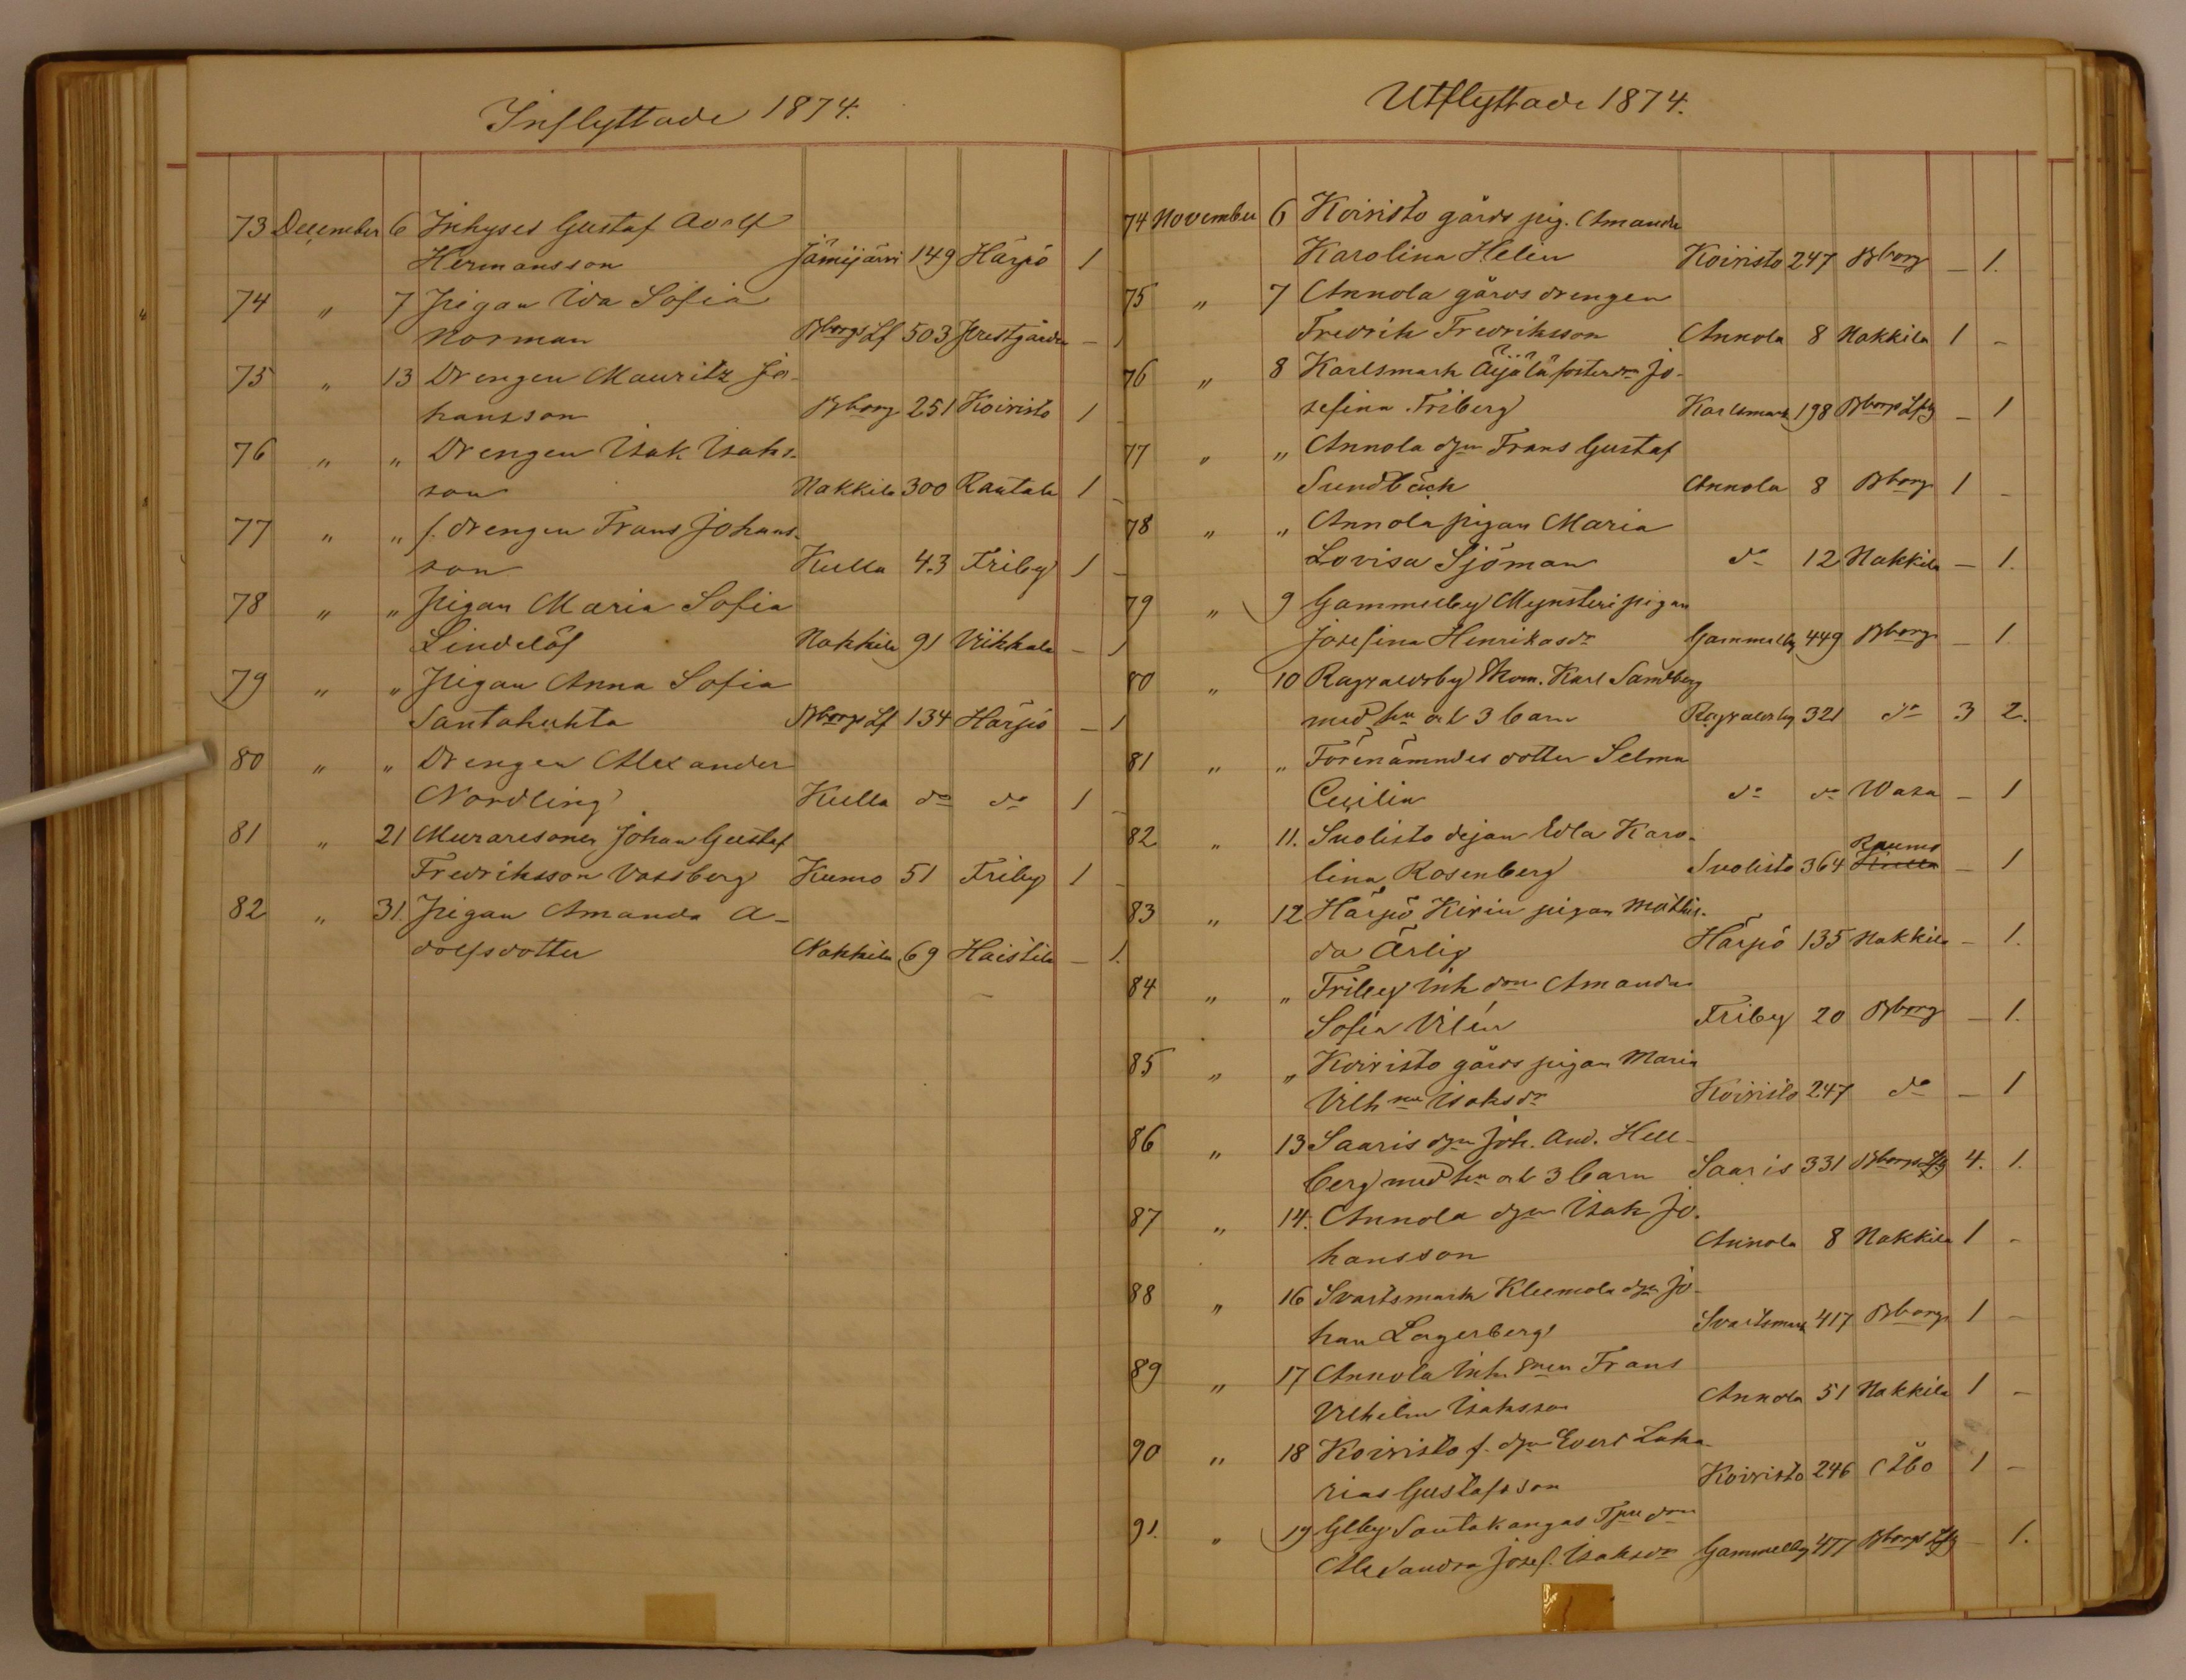 Inflyttade 1874.
73 December 6 Inhyses Gustaf Adolf
Hermansson Jämijärvi 149 Härpö 1 -
74 " 7 Pigan Ida Sofia
Norman Bborgs Lf 503 Prestgården - 1
75 " 13 Drengen Mauritz Jo-
hansson Bborg 251 Koivisto 1 -
76 " " Drengen Isak Isaks-
son Nakkila 300 Rantala 1 -
77 " " f. drengen Frans Johans-
son Kulla 43 Friby 1 -
78 " " Pigan Maria Sofia
Lindelöf Nakkila 91 Viikkala - 1
79 " " Pigan Anna Sofia
Santahuhta Bborgs Lf 134 Härpö - 1
80 " " Drengen Alexander
Nordling Kulla do do 1 -
81 " 21 Muraresonen Johan Gustaf
Fredriksson Vassberg Kumo 51 Friby 1 -
82 " 31. Pigan Amanda A-
dolfsdotter Nakkila 69 Haistila - 1.
Utflyttade 1874.
74 November 6 Koivisto gårds pig. Amanda
Karolina Helin Koivisto 247 Bborg - 1.
75 " 7 Annola gårds drengen
Fredrik Fredriksson Annola 8 Nakkila 1 -
76 " 8 Karlsmark Äijälä fosterdr Jo-
sefina Friberg Karlsmark 198 Bborgs Lfg - 1
77 " " Annola dgn Frans Gustaf
Sundbäck Annola 8 Bborg 1 -
78 " " Annola pigan Maria
Lovisa Sjöman do 12 Nakkila - 1.
79 " 9 Gammelby Mynsteri pigan
Josefina Henriksdr Gammelby 449 Bborg - 1
80 " 10 Ragvaldsby Skom. Karl Sandberg
med hu och 3 barn Ragvaldsby 321 do 3 2.
81 " " Förenämndes dotter Selma
Cecilia do do Wasa - 1
82 " 11. Suolisto dejan Edla Karo-
lina Rosenberg Suolisto 364 Raumo - 1
83 " 12 Härpö Kivin pigan Mathil-
da Ärlig Härpö 135 Nakkila - 1.
84 " " Friby Inh don Amanda
Sofia Vilén Friby 20 Bborg - 1.
85 " " Koivisto gårds pigan Maria
Vilhna Isaksdr Koivisto 247 do - 1
86 " 13 Saaris dgn Joh. And. Hell-
berg med hu och 3 barn Saaris 331 Bborgs Lfg 4. 1.
87 " 14. Annola dgn Isak Jo-
hansson Annola 8 Nakkila 1 -
88 " 16 Svartsmark Kleemola dgn Jo-
han Lagerberg Svartsmark 417 Bborg 1 -
89 " 17 Annola Inh. snen Frans
Vilhelm Isaksson Annola 51 Nakkila 1 -
90 " 18 Koivisto f. dgn Evert Saka-
rias Gustafsson Koivisto 246 Åbo 1 -
91. " 19 Glby Santakangas Tpre don
Alexandra Josef. Isaksdr Gammelby 477 Bborgs Lfg - 1.